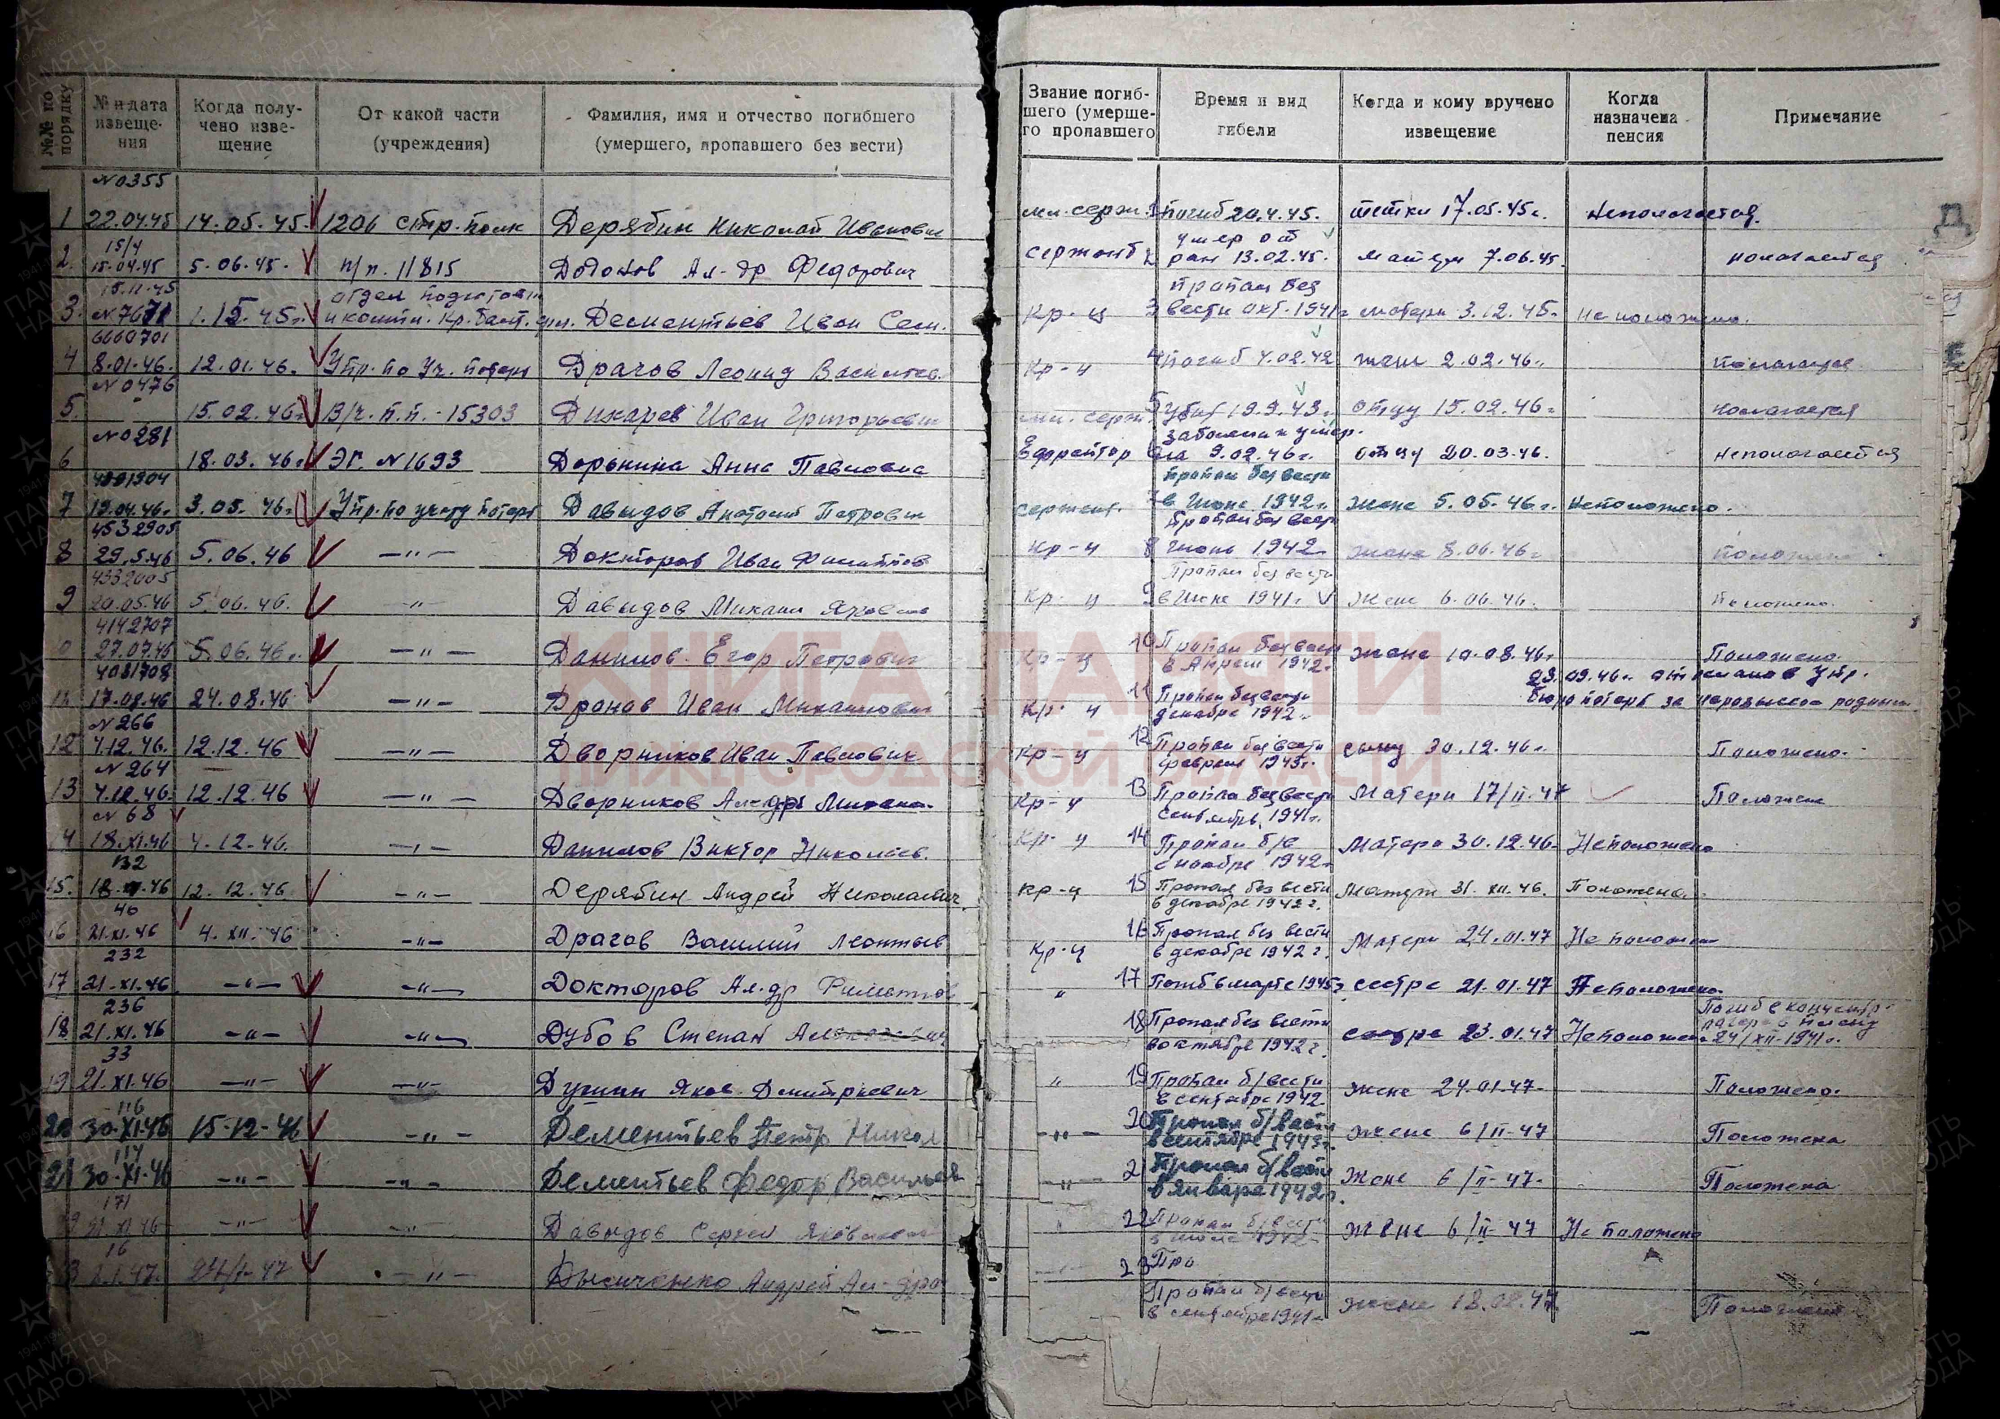 №№ по порядку
№ и дата извеще-ния
Когда полу-чено изве-щение
От какой части (учреждения)
Фамилия, имя и отчество погибшего (умершего, пропавшего без вести)
Звание погиб-шего (умерше-го пропавшего
Время и вид гибели
Когда и кому вручено извещение
Когда назначена пенсия
Примечание
№0355
1 22.04.45 14.05.45. 1206 стр. полк Дерябин Николай Иванович мл. серж. 1 погиб 20.4.45. тетки 17.05.45г. Неполагается.
15/4
2. 15.04.45 5.06.45. п/п. 11815 Ал-др Федорович сержант 2 умер от ран 13.02.45. матери 7.06.45. полагается
15.11.45
3. №7671 1.15.45г. отдел Дементьев Иван Сем. Кр-ц 3 пропал без вести окт. 1941г матери 3.12.45. не положено.
6660701
4 8.01.46. 12.01.46. Упр. по уч. потерь Драчов Леонид Васильев. Кр-ц 4 погиб 4.02.42 жене 2.02.46. полагается.
№0476
5. 15.02.46г. В/ч. п.п. -15303 Дикарев Иван Григорьевич мл. серж. 5 убит 19.9.43. отцу 15.02.46г полагается
№0281
6 18.03.46г. ЭГ. №1693 Анна Павловна Ефрейтор 6 заболела и умер-ла 9.02.46г. отцу 20.03.46. неполагается
4091904
7 19.04.46г. 3.05.46г. Упр. по учету потерь Давыдов Анатолий Петрович сержант. 7 пропал без вести в Июне 1942г. жене 5.05.46г. Неположено.
4532905
8 29.5.46 5.06.46 —"— Докторов Иван Филиппов Кр-ц 8 Пропал без вести июнь 1942 жене 8.06.46г. положено
4332005
9 20.05.46 5.06.46. —"— Давыдов Михаил Яковлев Кр-ц 9 Пропал без вести в Июне 1941г. жене 6.06.46. Положено.
4142707
0 27.07.46 5.06.46г. —"— Данилов Егор Петрович Кр-ц 10 Пропал без вести в Апреле 1942г. жене 10.08.46г Положено.
4081708
11 17.08.46 24.08.46 —"— Дронов Иван Михаилович Кр-ц 11 Пропал без вести декабре 1942г. 23.09.46г. отослано в Упр. бюро потерь за
№266
12 4.12.46. 12.12.46 —"— Дворников Иван Павлович Кр-ц 12 Пропал без вести феврале 1943г. сыну 30.12.46г. Положено.
№264
13 4.12.46. 12.12.46 —"— Дворников Ал-др Михаил. Кр-ц 13 Пропал без вести сентябрь 1941г. Матери 17/II.47 Положен
№68
4 18.XI.46 4.12.46. —"— Данилов Виктор Николаев. Кр-ц 14 Пропал б/в ноябре 1942г. Матери 30.12.46. Неположено
132
15. 18.XI.46 12.12.46. —"— Дерябин Андрей Николаевич. кр-ц 15 Пропал без вести в декабре 1942г. Матери 31.XII.46. Положено.
40
16 21.XI.46 4.XII.46 —"— Драгов Василий Леонтьев Кр-ц 16 Пропал без вести в декабре 1942 г. Матери 24.01.47 Не положен
232
17 21.XI.46 —"— —"— Докторов Ал-др Филиппов " 17 Погиб в марте 1945г сестре 21.01.47 Неположено.
236
18 21.XI.46 —"— —"— Дубов Степан " 18 Пропал без вести в октябре 1942 г. сестре 23.01.47 Неположен Погиб в концентр. лагере в плену 24/XII-1941г.
33
19 21.XI.46 —"— —"— Душин Яков Дмитриевич " 19 Пропал б/вести в сентябре 1942. жене 24.01.47- Положено.
116
20 30.XI.46 15-12-46 —"— Дементьев Петр Никол —"— 20 Пропал б/вести в сентябре 1943г. жене 6/II-47 Положена
114
21 30-XI-46 —"— —"— Дементьев Федор Васильев —"— 21 Пропал б/вести в январе 1942г. Жене 6/II-47- Положена
171
21.XI.46 —"— —"— Давыдов Сергей Яковлевич " 22 Пропал б/вести в июле 1942 Жене 6/II-47 Не положено
16
3 2.1.47. 24/1-47 —"— Дысиченко Андрей Ал-дров —"— 23 Про
Пропал б/вести в сентябре 1941г жене 18.02.47 Положена
Д
КНИГА ПАМЯТИ
НИЖЕГОРОДСКОЙ ОБЛАСТИ
ПАМЯТЬ НАРОДА